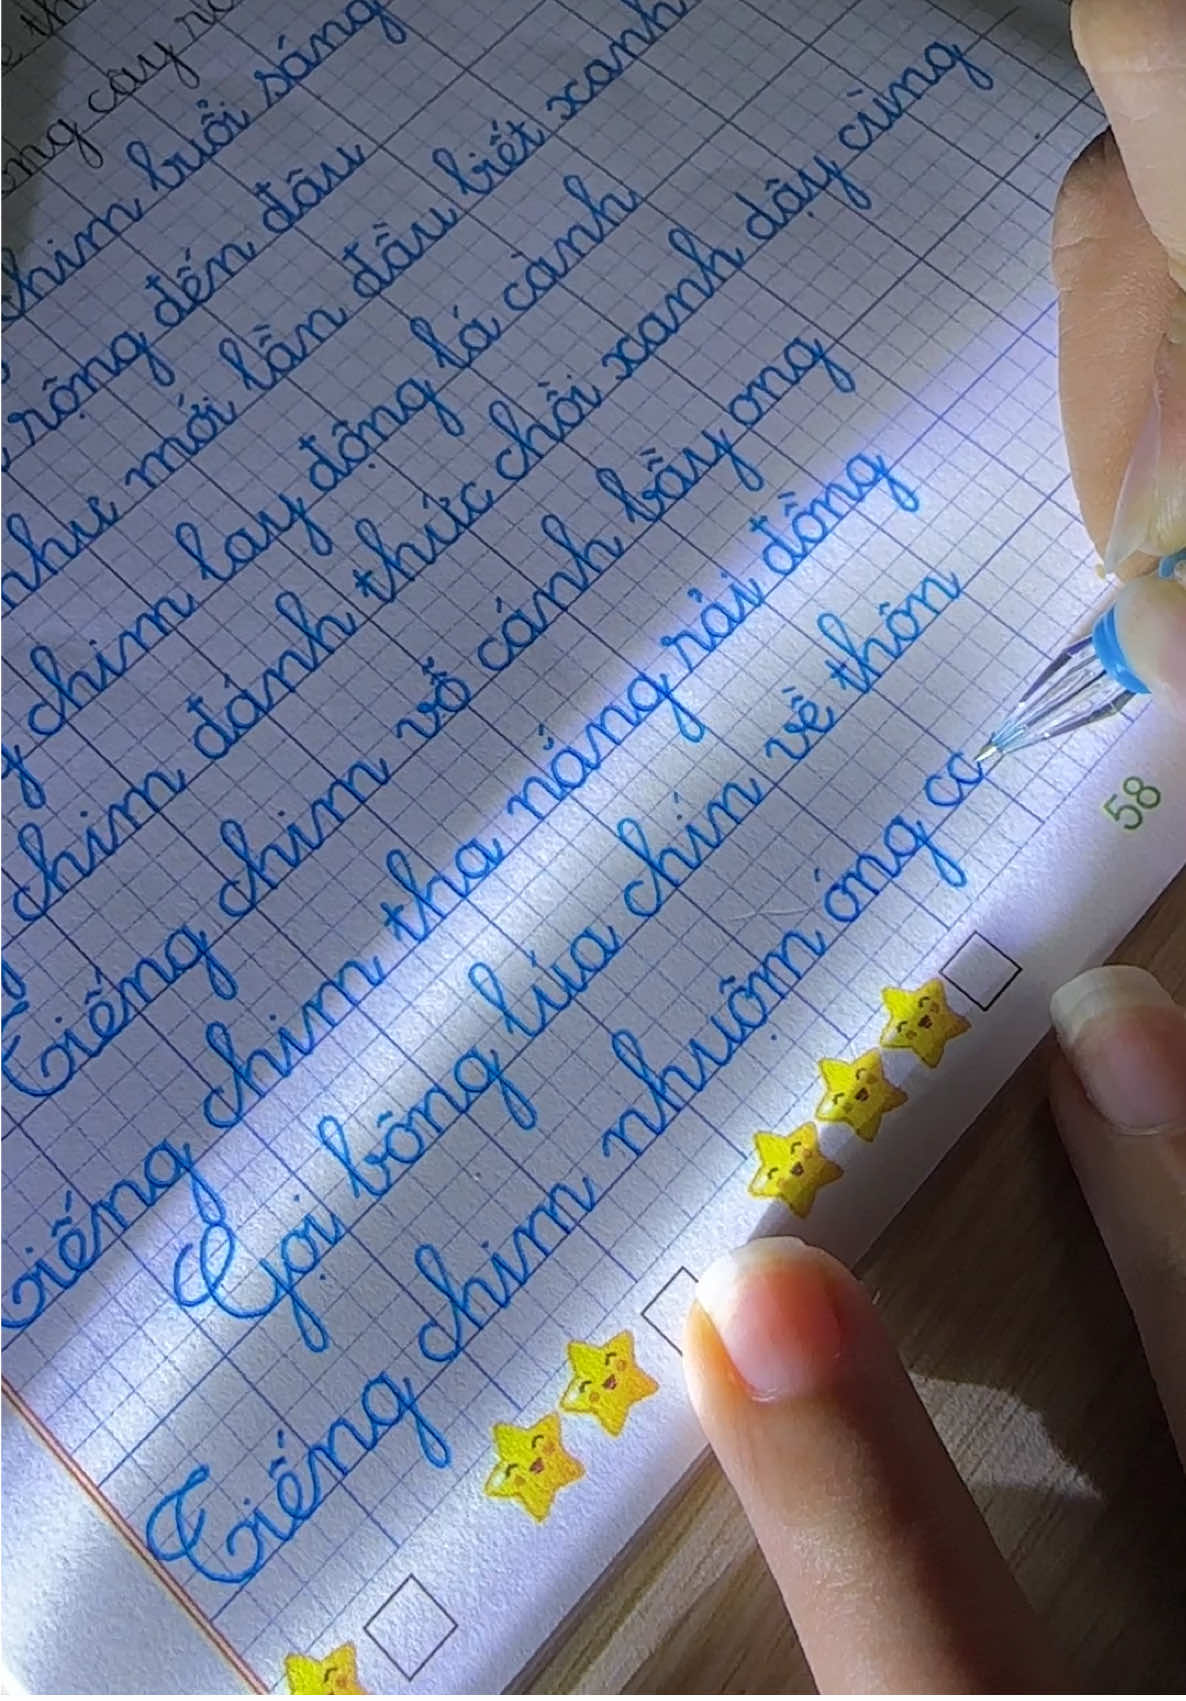 ng cây
chim buổi sáng
rộng đến đâu
như mới lần đầu biết xanh
chim lay động lá cành
chim đánh thức chồi xanh dậy cùng
Tiếng chim vỗ cánh bầy ong
Tiếng chim tha nắng rải đồng
Gọi bông lúa chín về thôn
Tiếng chim nhuộm óng cc
58